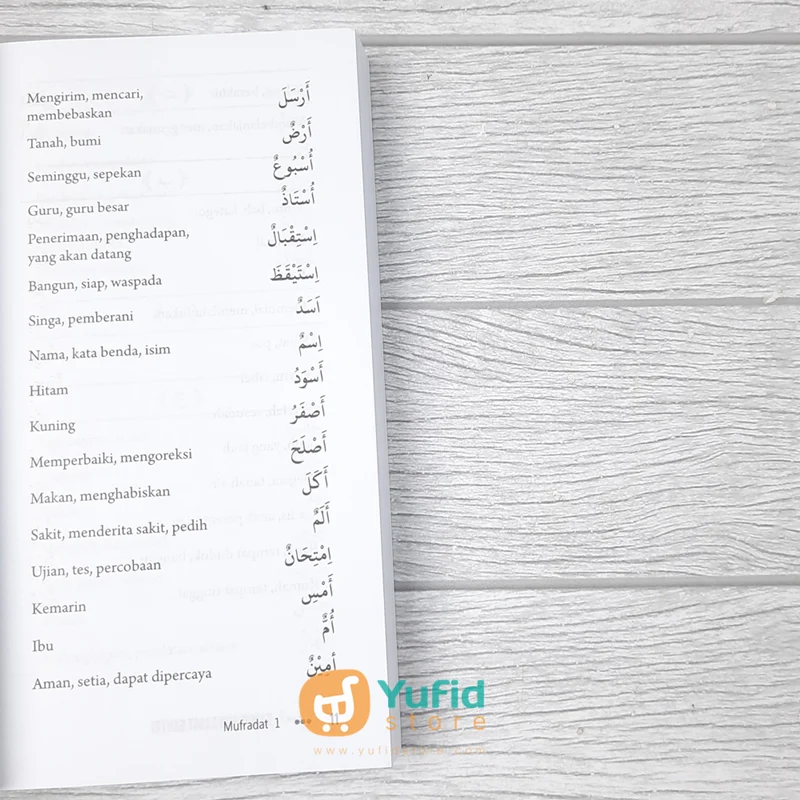 Mengirim, mencari, أَرْسَلَ
membebaskan
Tanah, bumi أَرْضٌ
Seminggu, sepekan أُسْبُوعٌ
Guru, guru besar أُسْتَاذٌ
Penerimaan, penghadapan, اِسْتِقْبَالٌ
yang akan datang
Bangun, siap, waspada اِسْتَيْقَظَ
Singa, pemberani اَسَدٌ
Nama, kata benda, isim اِسْمٌ
Hitam أَسْوَدُ
Kuning أَصْفَرُ
Memperbaiki, mengoreksi أَصْلَحَ
Makan, menghabiskan أَكَلَ
Sakit, menderita sakit, pedih أَلَمٌ
Ujian, tes, percobaan اِمْتِحَانٌ
Kemarin أَمْسِ
Ibu أُمٌّ
Aman, setia, dapat dipercaya أمِيْنٌ
Mufradat 1 •••
Yufid
store